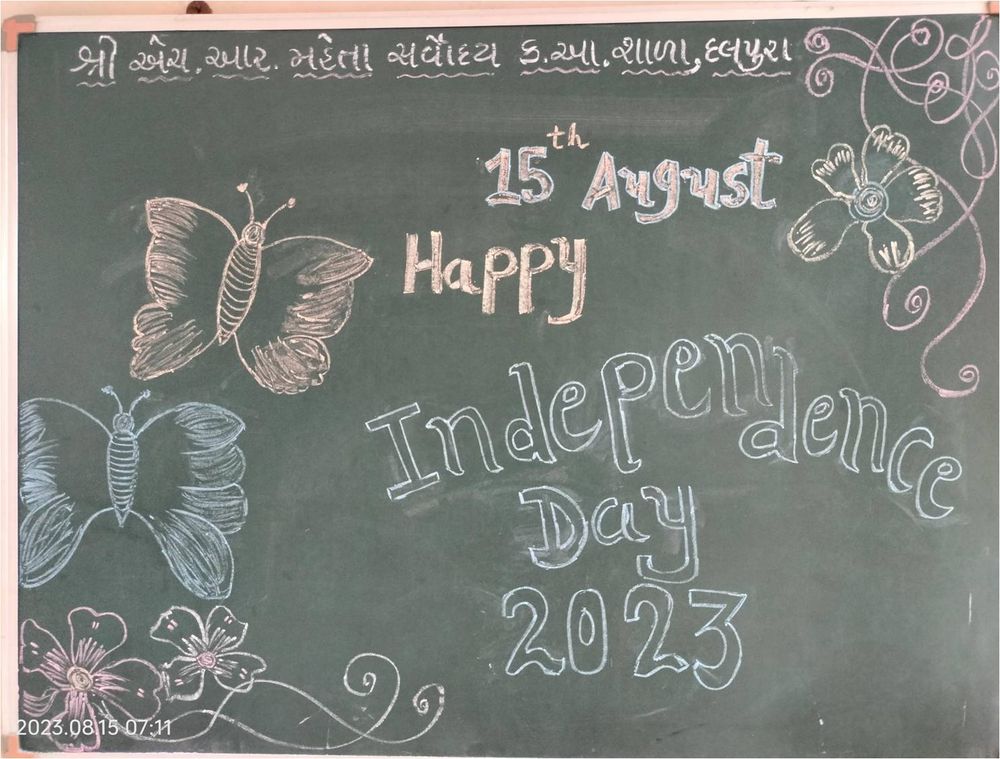 શ્રી એચ. આર. મહેતા સર્વોદય ક. આ. શાળા, દલપુરા
15th August
Happy
Independence
Day
2023
2023.08.15 07:11